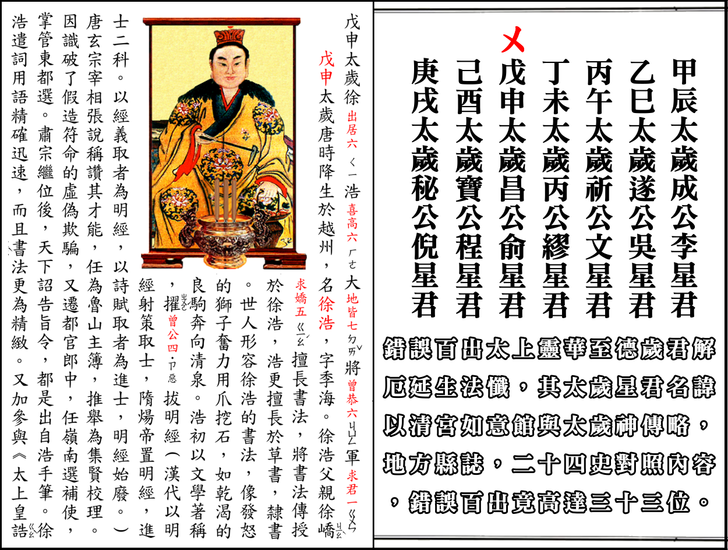 甲辰太歲成公李星君
乙巳太歲遂公吳星君
丙午太歲祈公文星君
丁未太歲丙公繆星君
戊申太歲昌公俞星君
己酉太歲寶公程星君
庚戌太歲秘公倪星君
錯誤百出太上靈華至德歲君解
厄延生法懺，其太歲星君名諱
以清宮如意館與太歲神傳略，
地方縣誌，二十四史對照內容
，錯誤百出竟高達三十三位。
戊申太歲徐出居六ㄑㄧ浩喜高六ㄏㄜ大地皆七將曾恭六軍求君一
戊申太歲唐時降生於越州，名徐浩，字季海。徐浩父親徐嶠
求嬌五擅長書法，將書法傳授
於徐浩，浩更擅長於草書，隸書
。世人形容徐浩的書法，像發怒
的獅子奮力用爪挖石，如乾渴的
良駒奔向清泉。浩初以文學著稱
，擢曾公四拔明經（漢代以明
經射策取士，隋煬帝置明經，進
士二科。以經義取者為明經，以詩賦取者為進士，明經始廢。）
唐玄宗宰相張說稱讚其才能，任為魯山主簿，推舉為集賢校理。
因識破了假造符命的虛偽欺騙，又遷都官郎中，任嶺南選補使，
掌管東都選。肅宗繼位後，天下詔告旨令，都是出自浩手筆。徐
浩遣詞用語精確迅速，而且書法更為精緻。又加參與《太上皇誥